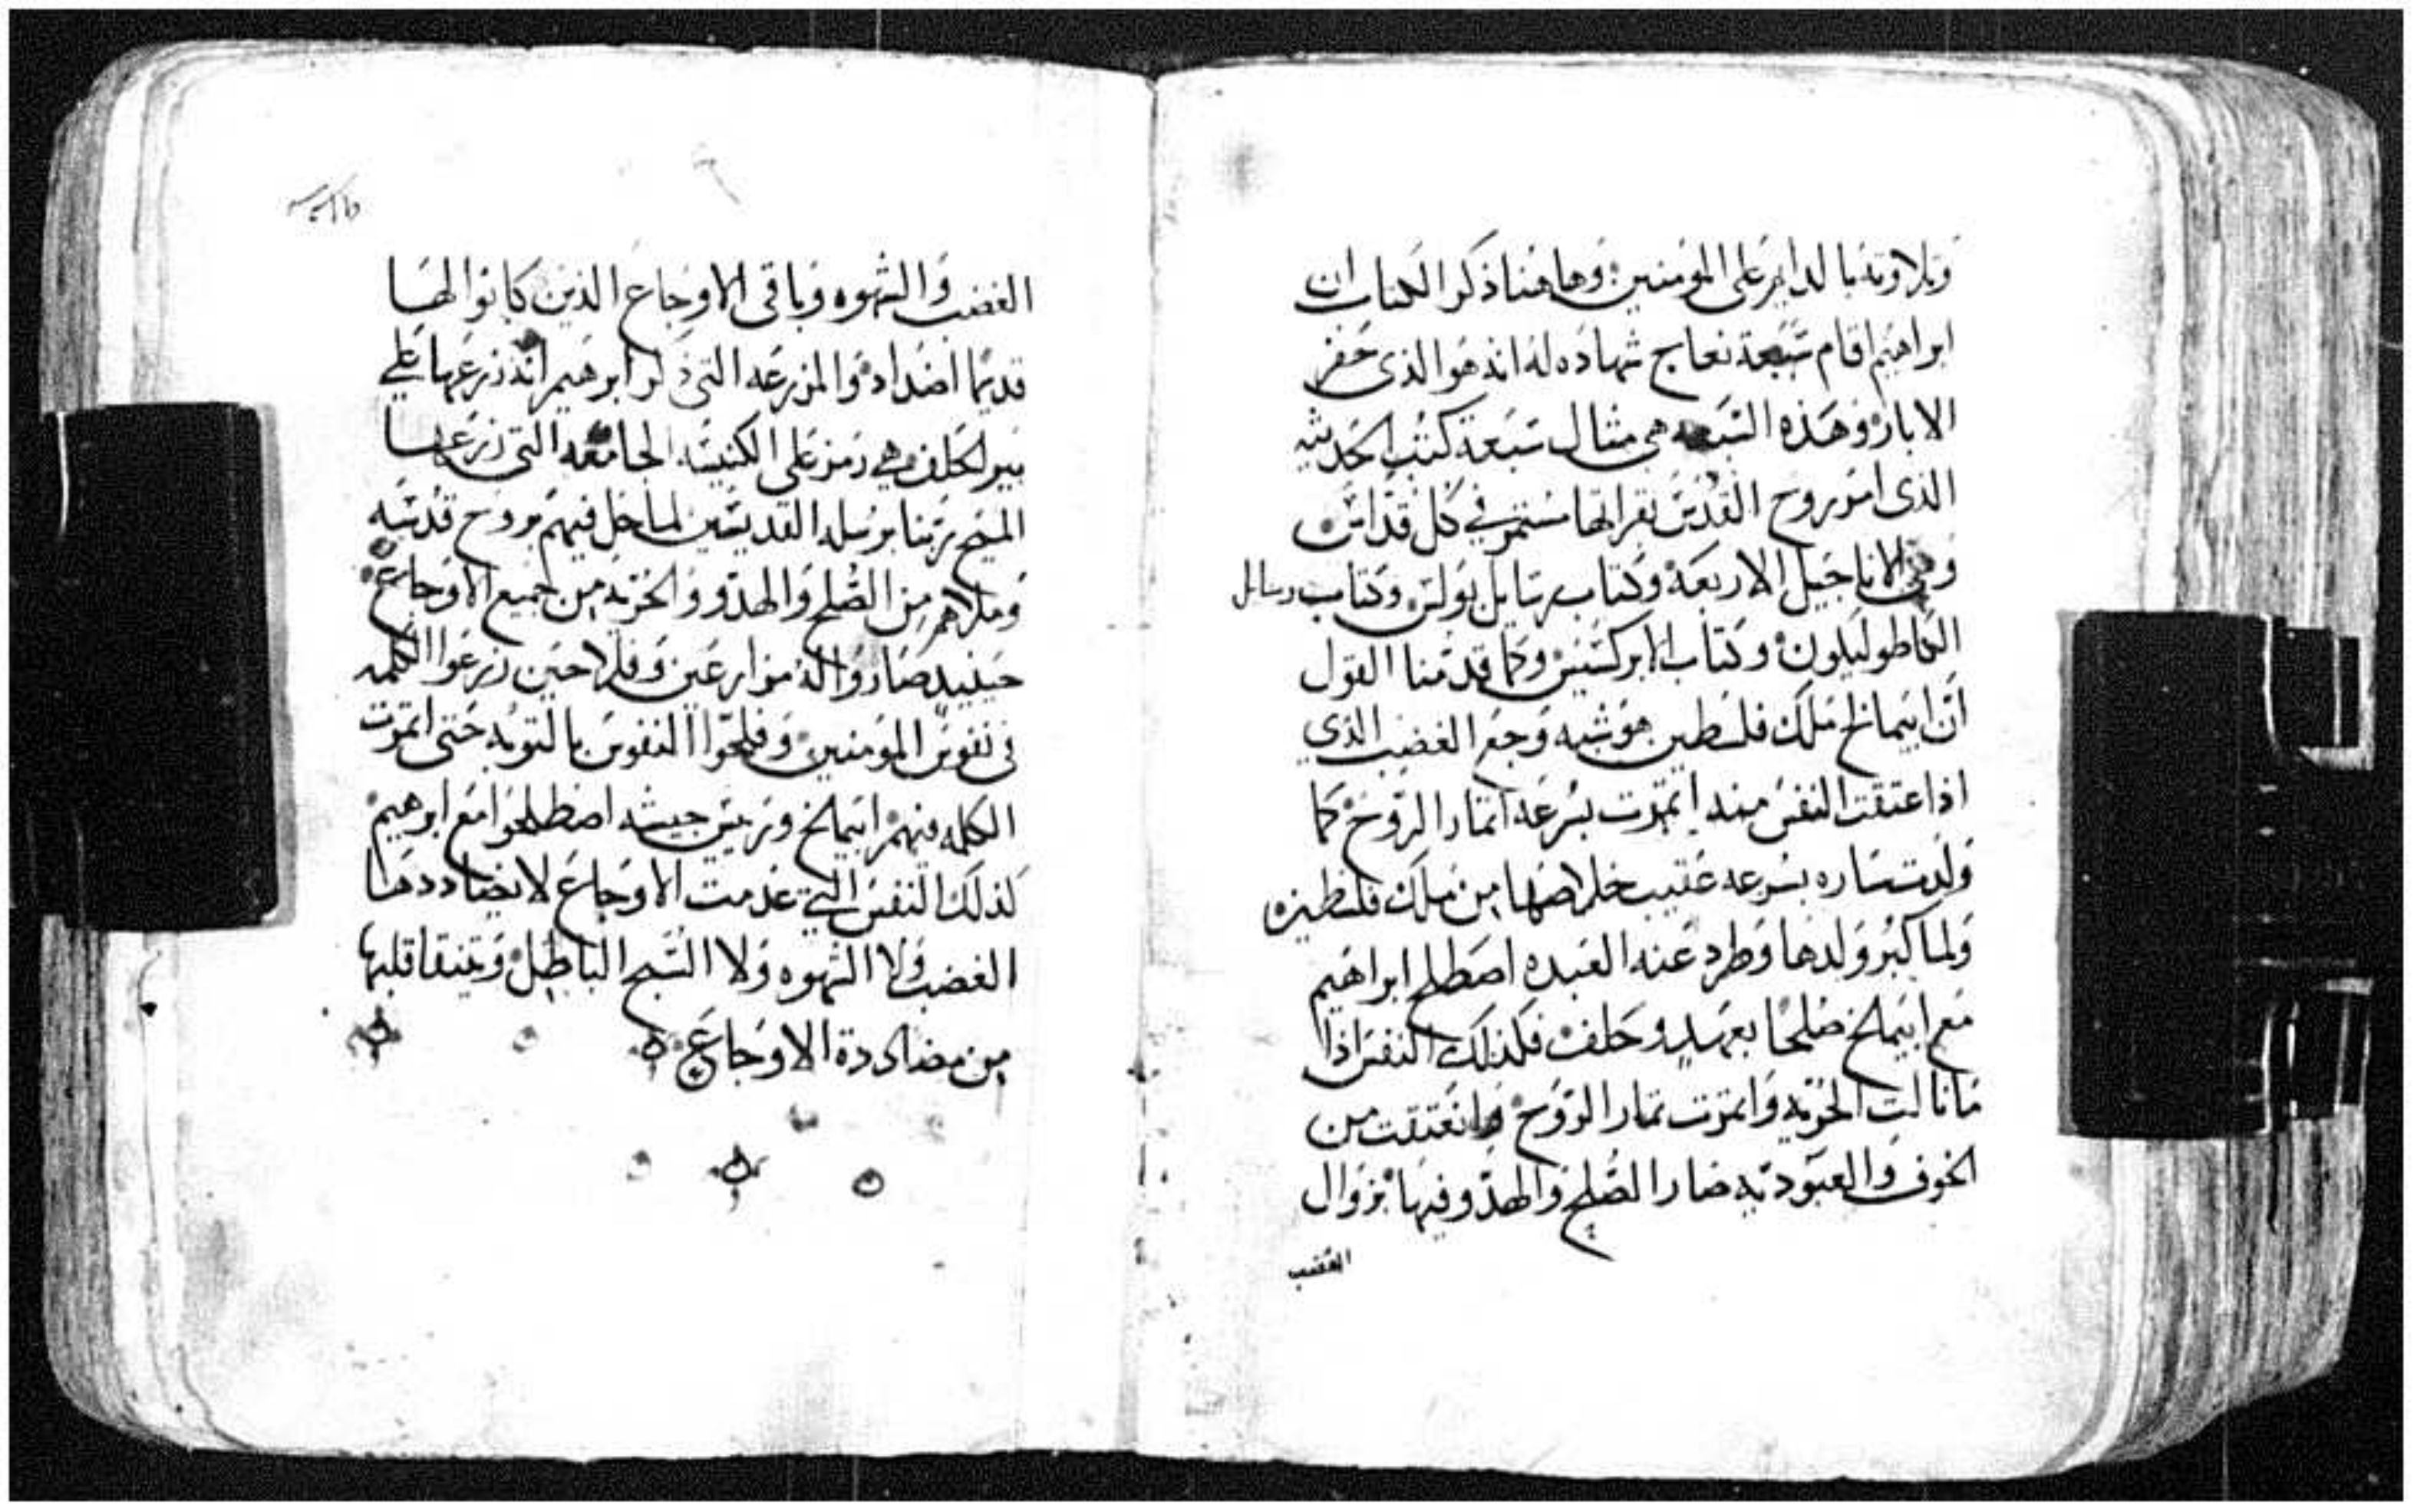 وتلاوته بالدايم على المومنين وهاهنا ذكر الكتاب ان
ابراهيم اقام سبعة نعاج شهاده له انه هو الذى حفر
الابار وهذه السبعه هى مثال سبعة كتب الحديثه
الذى امر روح القدس بقراتها مستمر في كل قداس
وهى الاناجيل الاربعة وكتاب رسايل بولس وكتاب رسايل
القاطوليكون وكتاب الابركسيس وكما قدمنا القول
ان ابيمالخ ملك فلسطين هو شبه وجع الغضب الذي
اذا عتقت النفس منه اثمرت بسرعه اثمار الروح كما
ولدت ساره بسرعه عقيب خلاصها من ملك فلسطين
ولما كبر ولدها وطرد عنه العبده اصطلح ابراهيم
مع ابيملخ صلحًا بعهد وحلف فكذلك النفس اذا
ما نالت الحريه واثمرت ثمار الروح وانعتقت من
الخوف والعبوديه صار الصلح والهدو فيها بزوال
الغضب
الغضب والشهوه وباقى الاوجاع الذين كانوا لها
قديمًا اضداد والمزرعه التى ذكر ابرهيم انه زرعها على
بير الحلف هي رمز على الكنيسه الجامعه التى زرعها
المسيح ربنا برسله القديسين لما حل فيهم بروح قدسه
وملاهم من الصلح والهدو والحريه من جميع الاوجاع
حينيد صاروا له مزارعين وفلاحين زرعوا الكلمه
فى نفوس المومنين وفلحوا النفوس بالتوبه حتى اثمرت
الكلمه فيهم ابيمالخ وريس جيشه اصطلحوا مع ابرهيم
كذلك النفس التي عدمت الاوجاع لا يضاددها
الغضب ولا الشهوه ولا السبح الباطل ويتنقا قلبها
من مضاددة الاوجاع